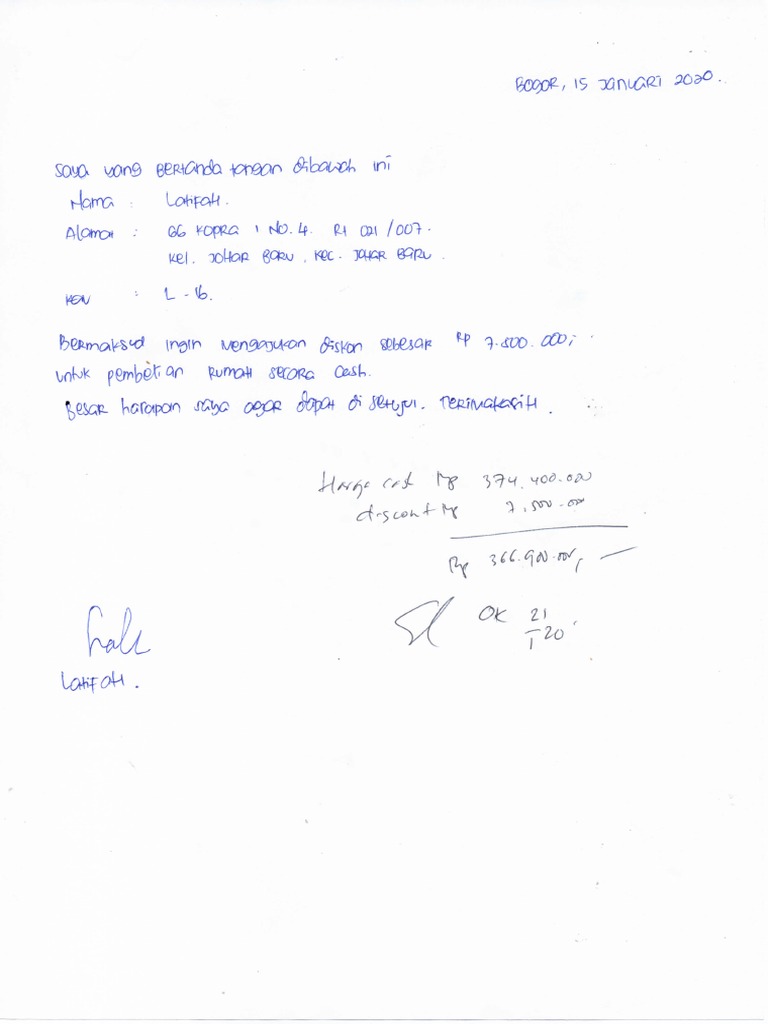 Bogor, 15 Januari 2020.
Saya yang bertanda tangan dibawah ini
Nama : Latifah.
Alamat : GG Kopra 1 No. 4. Rt 021/007.
Kel. Johar Baru. Kec. Johar Baru.
: L - 16.
Bermaksud ingin mengajukan diskon sebesar Rp 7.500.000;
untuk pembelian rumah secara cash.
Besar harapan saya agar dapat di setujui. Terimakasih.
Harga cash Rp 374.400.000
discount Rp 7.500.000
Rp 366.900.000,-
OK 21
I 20
Latifah.